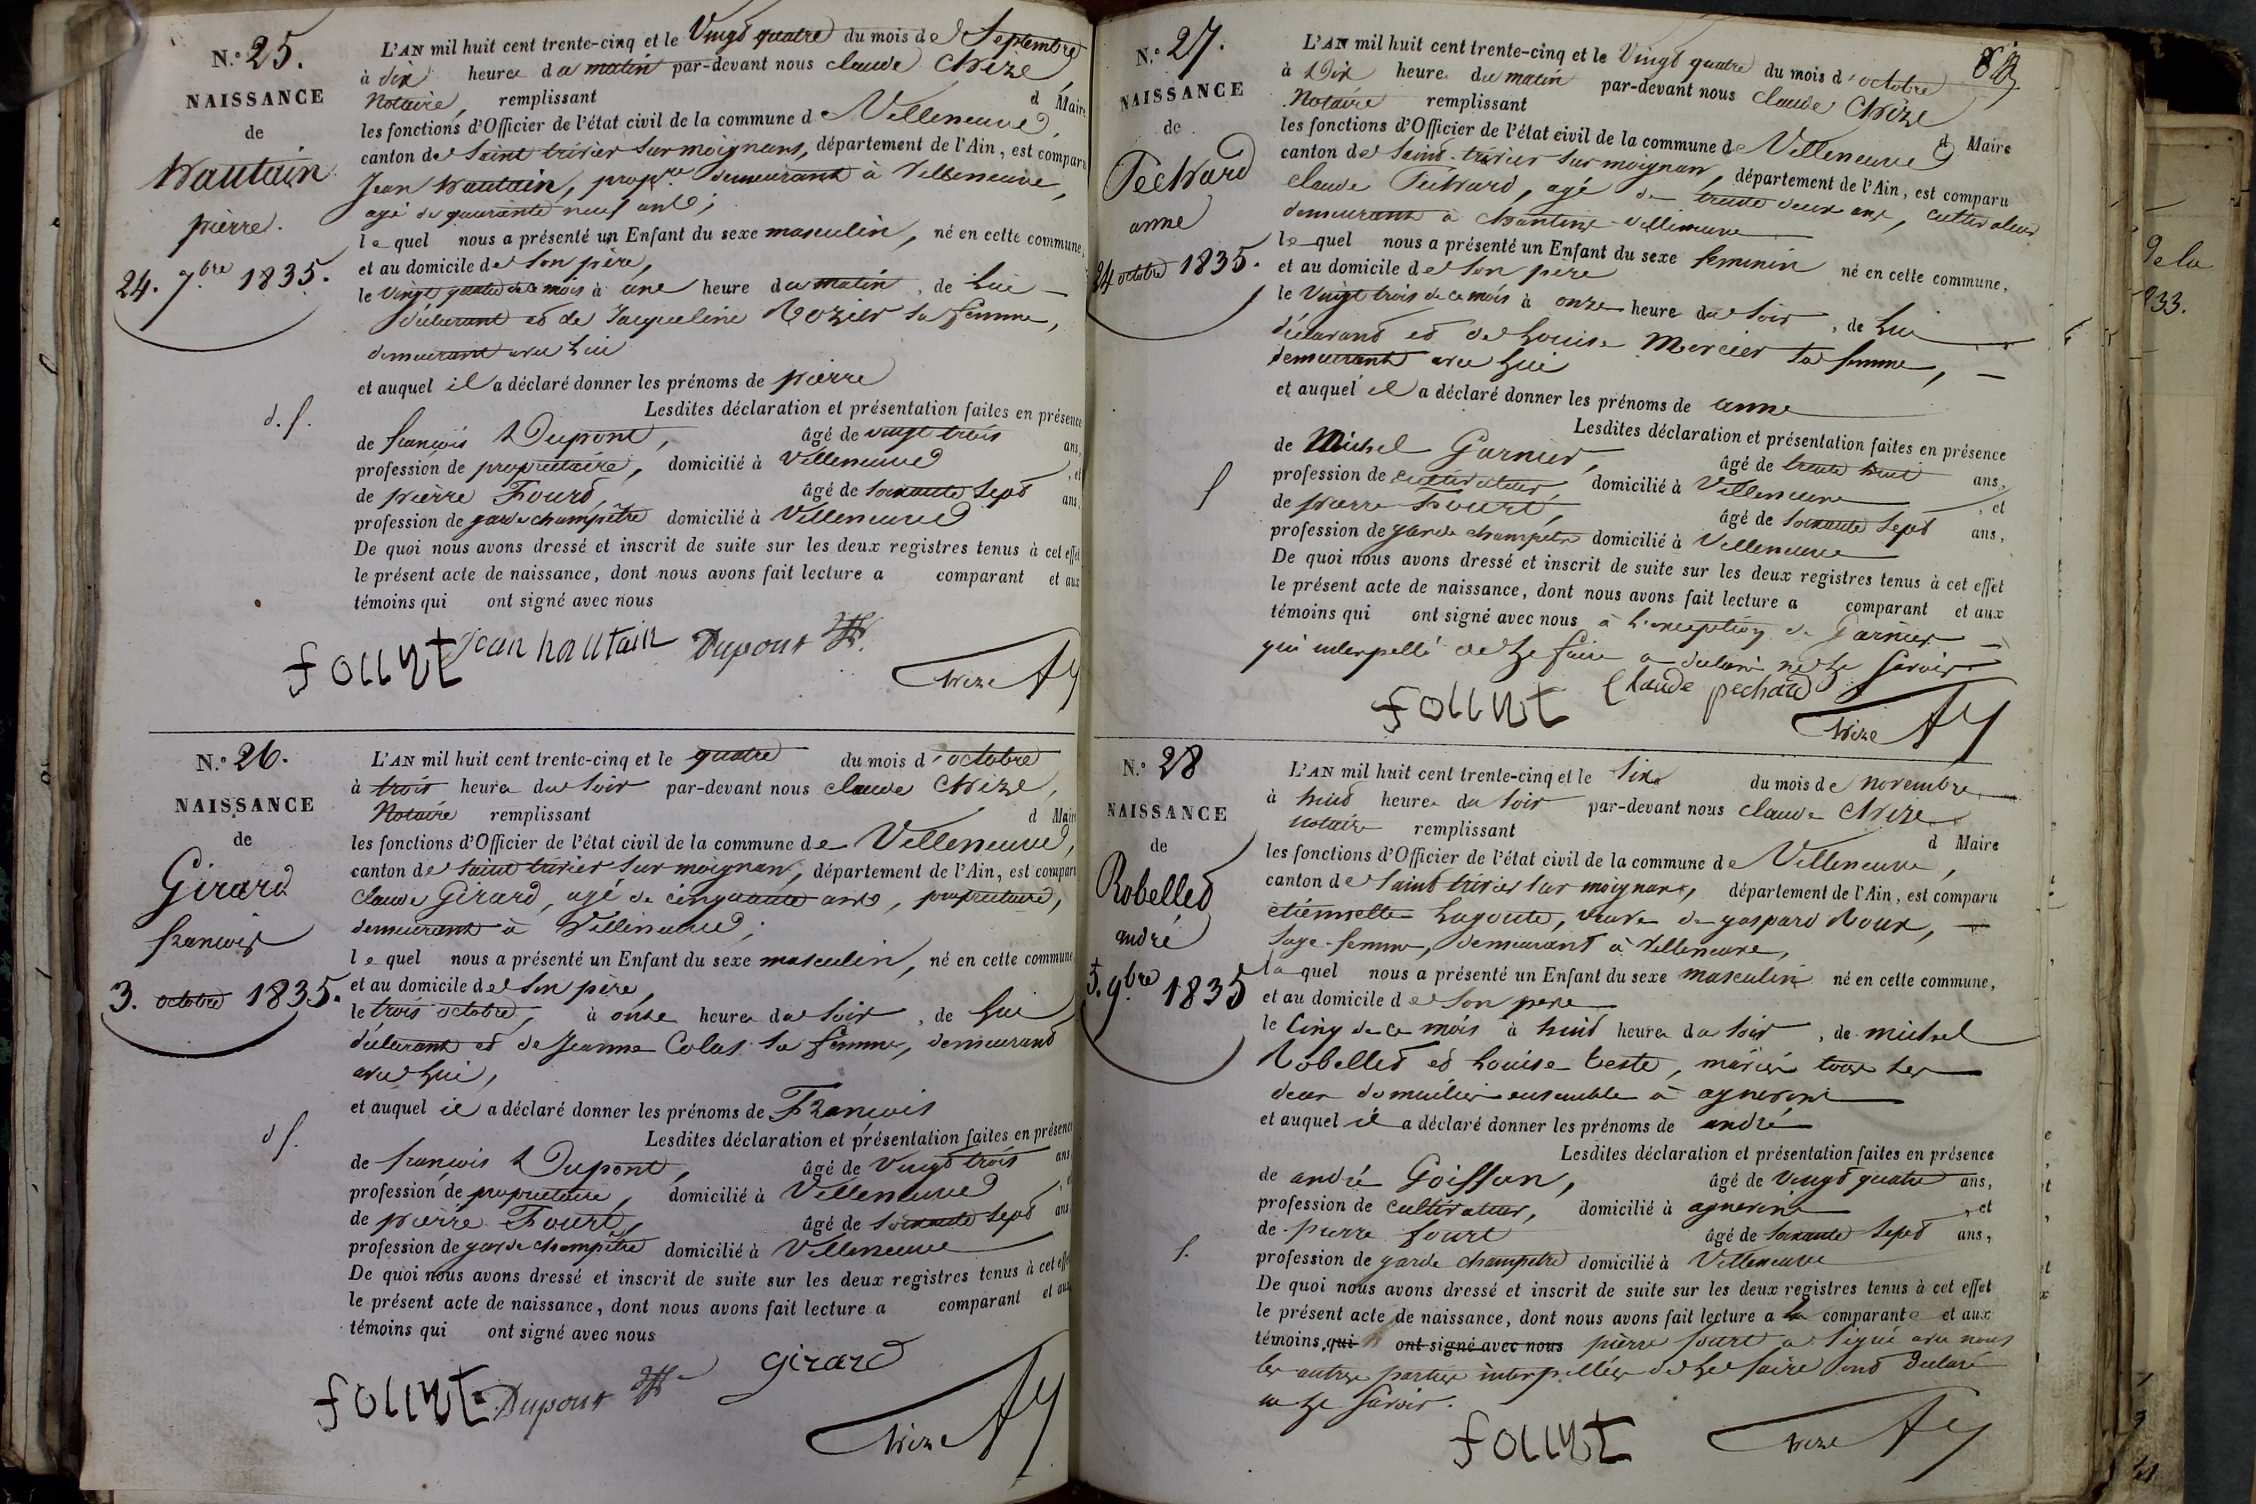 N.° 25.
NAISSANCE
de
hautain
pierre.
24. 7.bre 1835.
L'AN mil huit cent trente-cinq et le Vingt quatre du mois de Septembre
à dix heure du matin par-devant nous claude Chize,
Notaire, remplissant d Maire
les fonctions d'Officier de l'état civil de la commune de Villeneuve,
canton de Saint trivier Sur moignans, département de l'Ain, est comparu
Jean hautain, propre. demeurant à Villeneuve,
agé de quarante neuf ans;
le quel nous a présenté un Enfant du sexe masculin, né en cette commune,
et au domicile de Son père,
le vingt quatre de ce mois à une heure du matin, de Lui
déclarant et de Jacqueline Rozier sa femme,
demeurant avec Lui
et auquel il a déclaré donner les prénoms de pierre
d. f.
Lesdites déclaration et présentation faites en présence
de françois Dupont, âgé de vingt trois ans,
profession de propriétaire, domicilié à Villeneuve, et
de pierre Fourt, âgé de soixante Sept ans,
profession de garde champêtre domicilié à Villeneuve
De quoi nous avons dressé et inscrit de suite sur les deux registres tenus à cet effet
le présent acte de naissance, dont nous avons fait lecture a comparant et aux
témoins qui ont signé avec nous
fourt jean hautain Dupont
Chize
N.° 26.
NAISSANCE
de
Girard
françois
3. octobre 1835.
L'AN mil huit cent trente-cinq et le quatre du mois d'octobre
à trois heure du Soir par-devant nous claude Chize,
Notaire remplissant d Maire
les fonctions d'Officier de l'état civil de la commune de Villeneuve,
canton de Saint trivier Sur moignans, département de l'Ain, est comparu
claude Girard, agé de cinquante ans, propriétaire,
demeurant à Villeneuve;
le quel nous a présenté un Enfant du sexe masculin, né en cette commune
et au domicile de Son père,
le trois octobre, à onze heure du Soir, de Lui
déclarant et de Jeanne Colas sa femme, demeurant
avec Lui,
et auquel il a déclaré donner les prénoms de François
d f.
Lesdites déclaration et présentation faites en présence
de françois Dupont, âgé de Vingt trois ans
profession de propriétaire, domicilié à Villeneuve
de pierre Fourt, âgé de soixante Sept ans
profession de garde champêtre domicilié à Villeneuve
De quoi nous avons dressé et inscrit de suite sur les deux registres tenus à cet effet
le présent acte de naissance, dont nous avons fait lecture a comparant et aux
témoins qui ont signé avec nous
fourt Dupont girard
Chize
N.° 27.
NAISSANCE
de
Pechard
anne
24 octobre 1835.
L'AN mil huit cent trente-cinq et le Vingt quatre du mois d'octobre
à Dix heure du matin par-devant nous claude Chize
Notaire remplissant d Maire
les fonctions d'Officier de l'état civil de la commune de Villeneuve
canton de Saint-trivier Sur moignans, département de l'Ain, est comparu
claude Pechard, agé de trente deux ans, cultivateur
demeurant à Chanteins-Villeneuve
le quel nous a présenté un Enfant du sexe féminin né en cette commune,
et au domicile de Son père
le Vingt trois de ce mois à onze heure du Soir, de Lui
déclarant et de Louise Mercier sa femme,
demeurant avec Lui
et auquel il a déclaré donner les prénoms de anne
Lesdites déclaration et présentation faites en présence
f
de Michel Garnier, âgé de trente huit ans,
profession de cultivateur, domicilié à Villeneuve, et
de pierre Fourt, âgé de soixante Sept ans,
profession de garde champêtre domicilié à Villeneuve
De quoi nous avons dressé et inscrit de suite sur les deux registres tenus à cet effet
le présent acte de naissance, dont nous avons fait lecture a comparant et aux
témoins qui ont signé avec nous à L'exception de Garnier
qui interpellé de Le faire a déclaré ne Le Savoir
fourt Claude pechard
Chize
N.° 28
NAISSANCE
de
Robellet
andré
5. 9.bre 1835
L'AN mil huit cent trente-cinq et le Six du mois de novembre
à huit heure du Soir par-devant nous claude Chize
notaire remplissant d Maire
les fonctions d'Officier de l'état civil de la commune de Villeneuve,
canton de Saint trivier Sur moignans, département de l'Ain, est comparu
étiennette Lagoute, veuve de gaspard Roux,
Sage-femme, demeurant à Villeneuve,
la quel nous a présenté un Enfant du sexe masculin né en cette commune,
et au domicile de Son père
le Cinq de ce mois à huit heure du Soir, de michel
Robellet et Louise teste, mariés tous les
deux domiciliés ensemble à agnereins
et auquel il a déclaré donner les prénoms de andré
Lesdites déclaration et présentation faites en présence
de andré Goiffon, âgé de Vingt quatre ans,
profession de cultivateur, domicilié à agnereins, et
de pierre fourt âgé de soixante Sept ans,
f.
profession de garde champêtre domicilié à Villeneuve
De quoi nous avons dressé et inscrit de suite sur les deux registres tenus à cet effet
le présent acte de naissance, dont nous avons fait lecture a la comparante et aux
témoins qui ont signé avec nous pierre fourt a Signé avec nous
les autres parties interpellées de Le faire ont déclaré
ne Le Savoir.
fourt Chize
de la
833.